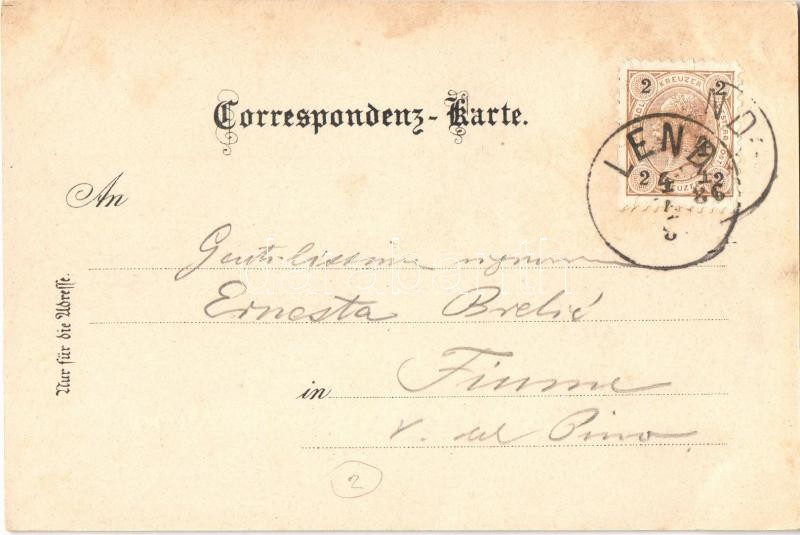 2 KREUZER 2
Correspondenz-Karte.
LEND
2 KREUZER 2
An
Gentilissima signora
Ernesta Brelić
Nur für die Adresse.
in Fiume
V. del Pino
2